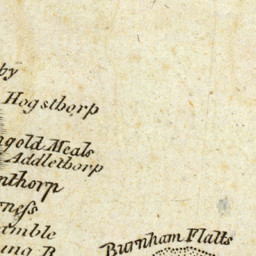 by
Hogsthorp
ngold Meals
Addlethorp
nthorp
rness
Burnham Flatts